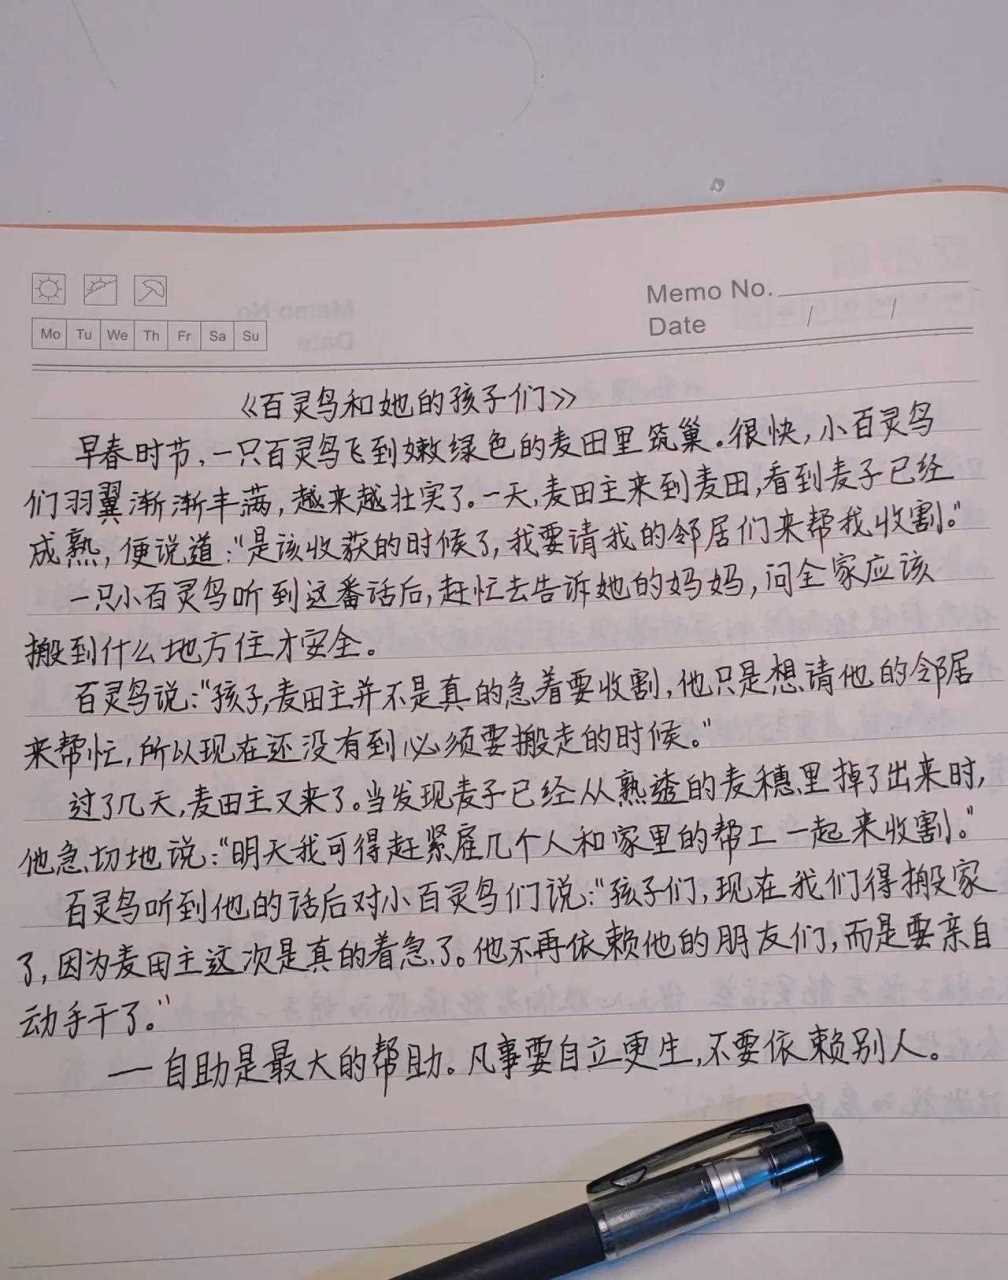 Memo No.
Date / /
Mo Tu We Th Fr Sa Su
《百灵鸟和她的孩子们》
早春时节,一只百灵鸟飞到嫩绿色的麦田里筑巢。很快,小百灵鸟
们羽翼渐渐丰满,越来越壮实了。一天,麦田主来到麦田,看到麦子已经
成熟,便说道:“是该收获的时候了,我要请我的邻居们来帮我收割。”
一只小百灵鸟听到这番话后,赶忙去告诉她的妈妈,问全家应该
搬到什么地方住才安全。
百灵鸟说:“孩子,麦田主并不是真的急着要收割,他只是想请他的邻居
来帮忙,所以现在还没有到必须要搬走的时候。”
过了几天,麦田主又来了。当发现麦子已经从熟透的麦穗里掉了出来时,
他急切地说:“明天我可得赶紧雇几个人和家里的帮工一起来收割。”
百灵鸟听到他的话后对小百灵鸟们说:“孩子们,现在我们得搬家
了,因为麦田主这次是真的着急了。他不再依赖他的朋友们,而是要亲自
动手干了。”
一自助是最大的帮助。凡事要自立更生,不要依赖别人。